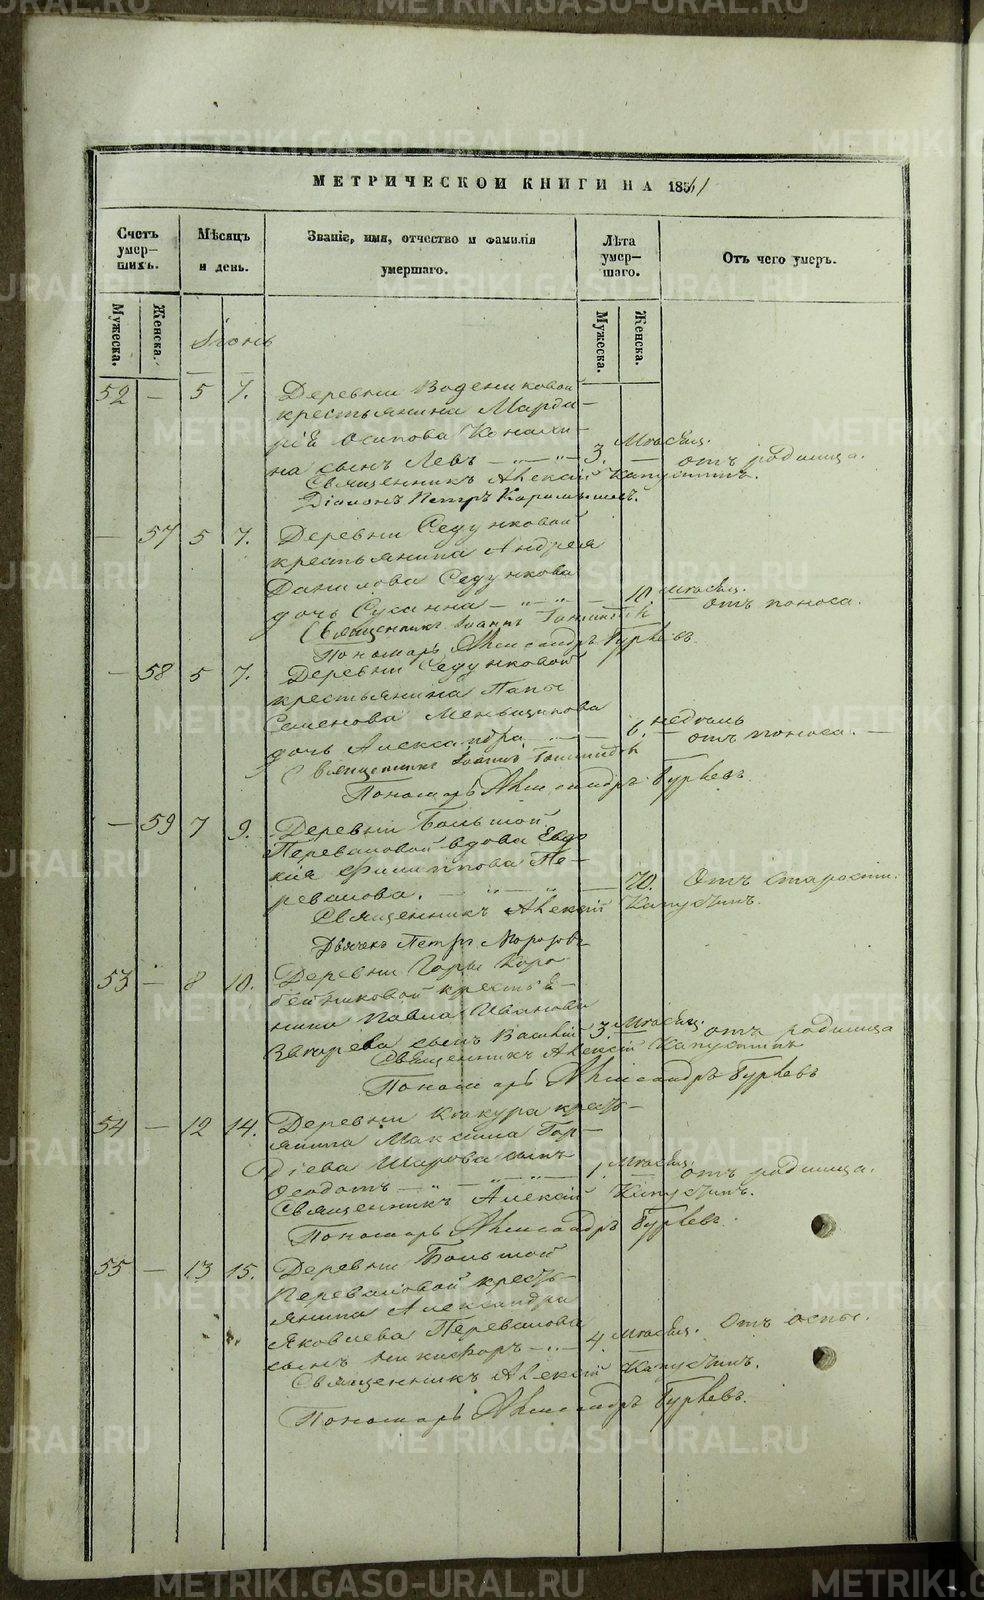 МЕТРИЧЕСКОЙ КНИГИ НА 1861
Счетъ умер-шихъ.
Мѣсяцъ и день.
Званіе, имя, отчество и фамилія умершаго.
Лѣта умер-шаго.
Отъ чего умеръ.
Мужеска.
Женска.
Мужеска.
Женска.
Іюнь
52 — 5 7. Деревни Воденниковой
крестьянина Марда-
рія Осипова Конахи-
на сынъ Левъ — 3. Мѣсяц. отъ родимца.
Священникъ Алексій Капустинъ.
Діаконъ Петръ
— 57 5 7. Деревни Седунковой
крестьянина Андрея
Данилова Седункова
дочь Сусанна — 10 мѣсяц. отъ поноса.
Священникъ Іоаннъ
Пономарь Александръ Гурьевъ.
— 58 5 7. Деревни Седунковой
крестьянина
Семенова Меньщикова
дочь Александра — 6. недѣль отъ поноса. —
Священникъ Іоаннъ
Пономарь Александръ Гурьевъ.
— 59 7 9. Деревни Большой
Переваловой вдова Евдо
кія Филиппова Пе-
ревалова. — 70. Отъ старости.
Священникъ Алексій Капустинъ.
Дьячекъ Петръ Морозовъ
53 — 8 10. Деревни Горы Коро
бейниковой крестья-
нина Павла Иванова
Звѣрева сынъ Василій 3. Мѣсяц. отъ родимца
Священникъ Алексій Капустинъ
Пономарь Александръ Гурьевъ
54 — 12 14. Деревни крестъ-
янина Максима Гор-
діева Шарова сынъ
Ѳеодотъ — 1. Мѣсяц. отъ родимца.
Священникъ Алексій Капустинъ.
Пономарь Александръ Гурьевъ.
55 — 13 15. Деревни Большой
Переваловой кресть-
янина Александра
Яковлева Перевалова
сынъ Никифоръ — 4. мѣсяц. Отъ оспы.
Священникъ Алексій Капустинъ.
Пономарь Александръ Гурьевъ.
METRIKI.GASO-URAL.RU